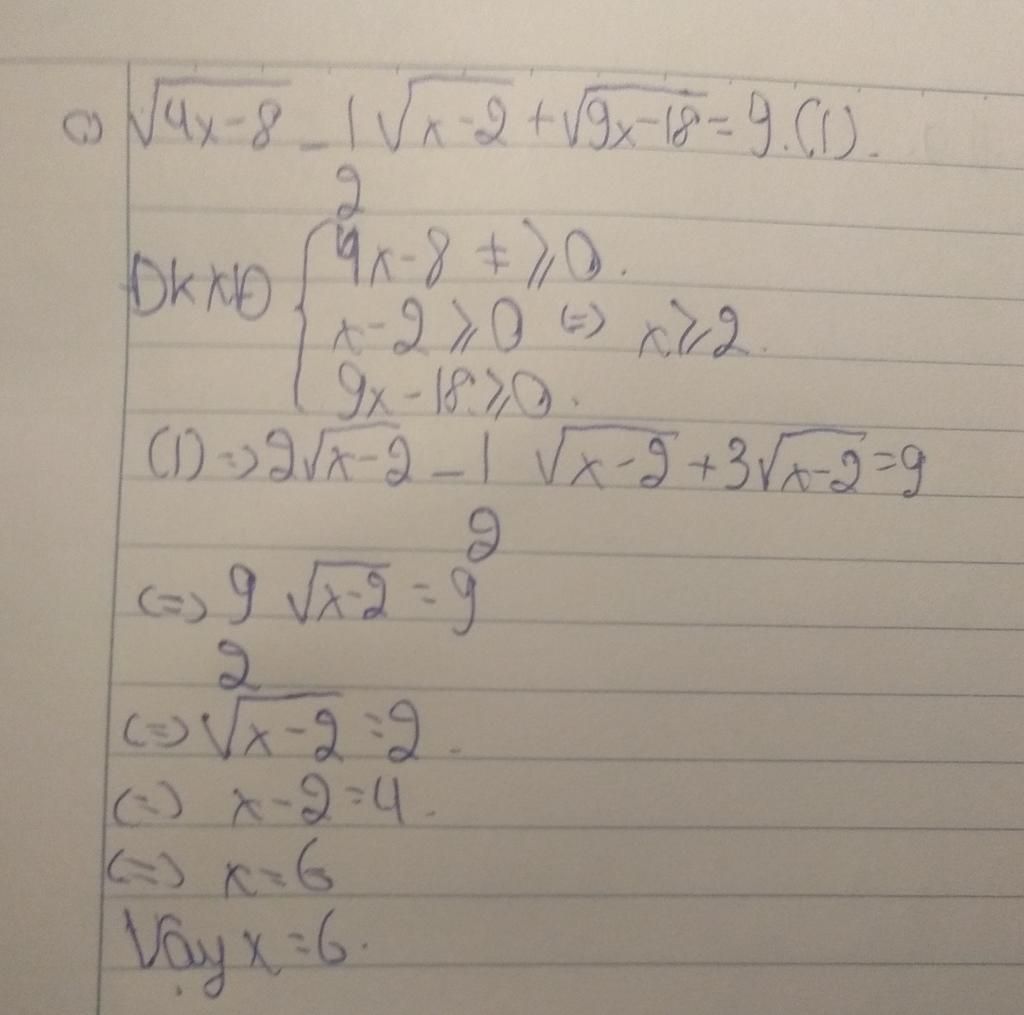 c) √4x-8 - 1/2 √x-2 + √9x-18 = 9. (1).
ĐKXĐ { 4x-8 ≠ ⩾ 0.
x-2 ⩾ 0 <=> x ⩾ 2.
9x-18 ⩾ 0.
(1) => 2√x-2 - 1/2 √x-2 + 3√x-2 = 9
<=> 9/2 √x-2 = 9
<=> √x-2 = 2.
<=> x-2 = 4.
<=> x = 6
Vậy x = 6.